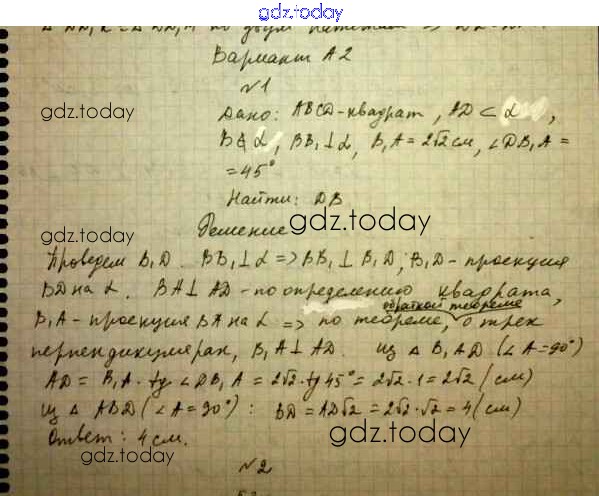 gdz.today
Вариант А2
№1
gdz.today
Дано: ABCD-квадрат, AD ⊂ α,
B∉α, BB₁⊥α, B₁A = 2√2 см, ∠DB₁A =
= 45°
gdz.today
Найти: DB
gdz.today
Решение
gdz.today
Проведем B₁D. BB₁⊥α => BB₁ ⊥ B₁D; B₁D - проекция
BD на α. BA⊥AD - по определению квадрата,
обратной теореме
B₁A - проекция BA на α => по теореме, о трех
перпендикулярах, B₁A⊥AD. Из △B₁AD (∠A=90°)
AD = B₁A · tg ∠DB₁A = 2√2 · tg 45° = 2√2 · 1 = 2√2 (см)
Из △ ABD (∠A=90°): BD = AD√2 = 2√2·√2 = 4 (см)
Ответ: 4 см.
gdz.today
gdz.today
№2